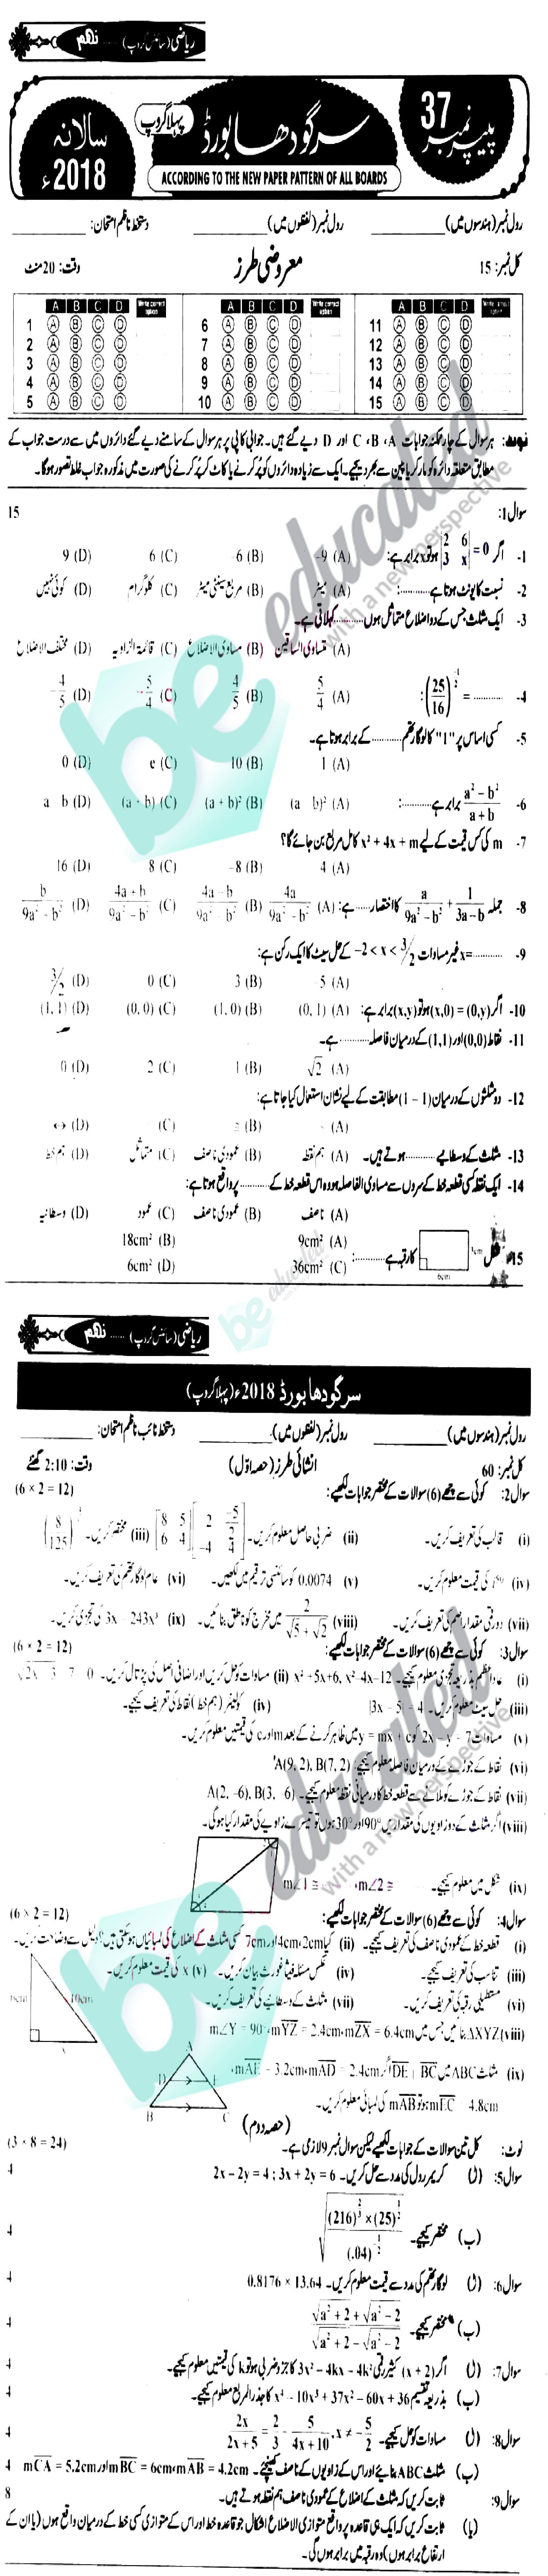 ریاضی (سائنس گروپ) ...... نہم
پیپر نمبر 37
سرگودھا بورڈ
پہلا گروپ
سالانہ 2018ء
ACCORDING TO THE NEW PAPER PATTERN OF ALL BOARDS
رول نمبر (ہندسوں میں) ________ رول نمبر (لفظوں میں) ________ دستخط ناظم امتحان: ________
کل نمبر: 15 معروضی طرز وقت: 20 منٹ
A B C D Write correct option A B C D Write correct option A B C D Write correct option
1 A B C D 6 A B C D 11 A B C D
2 A B C D 7 A B C D 12 A B C D
3 A B C D 8 A B C D 13 A B C D
4 A B C D 9 A B C D 14 A B C D
5 A B C D 10 A B C D 15 A B C D
نوٹ: ہر سوال کے چار ممکنہ جوابات A، B، C اور D دیے گئے ہیں۔ جوابی کاپی پر ہر سوال کے سامنے دیے گئے دائروں میں سے درست جواب کے
مطابق متعلقہ دائرہ کو مارکر یا پین سے بھر دیجیے۔ ایک سے زیادہ دائروں کو پُر کرنے یا کاٹ کر پُر کرنے کی صورت میں مذکورہ جواب غلط تصور ہوگا۔
سوال 1: 15
1- اگر |2 6; 3 x| = 0 ہو تو x برابر ہے: (A) -9 (B) -6 (C) 6 (D) 9
2- نسبت کا یونٹ ہوتا ہے .........: (A) میٹر (B) مربع سینٹی میٹر (C) کلوگرام (D) کوئی نہیں
3- ایک مثلث جس کے دو اضلاع متماثل ہوں ......... کہلاتی ہے۔
(A) متساوی الساقین (B) مساوی الاضلاع (C) قائمۃ الزاویہ (D) مختلف الاضلاع
4- ......... = (25/16)^(-1/2): (A) 5/4 (B) 4/5 (C) -5/4 (D) -4/5
5- کسی اساس پر "1" کا لوگارتھم ......... کے برابر ہوتا ہے۔
(A) 1 (B) 10 (C) e (D) 0
6- (a² - b²)/(a + b) برابر ہے .........: (A) (a - b)² (B) (a + b)² (C) (a + b) (D) a - b
7- m کی کس قیمت کے لیے x² + 4x + m کامل مربع بن جائے گا؟
(A) 4 (B) -8 (C) 8 (D) 16
8- جملہ a/(9a² - b²) + 1/(3a - b) کا اختصار ......... ہے: (A) 4a/(9a² - b²) (B) (4a - b)/(9a² - b²) (C) (4a + b)/(9a² - b²) (D) b/(9a² - b²)
9- ......... = x غیر مساوات -2 < x < 3/2 کے حل سیٹ کا ایک رکن ہے:
(A) -5 (B) 3 (C) 0 (D) 3/2
10- اگر (x, 0) = (0, y) ہو تو (x, y) برابر ہے: (A) (0, 1) (B) (1, 0) (C) (0, 0) (D) (1, 1)
11- نقاط (0,0) اور (1,1) کے درمیان فاصلہ ......... ہے۔
(A) √2 (B) 1 (C) 2 (D) 0
12- دو مثلثوں کے درمیان (1 - 1) مطابقت کے لیے نشان استعمال کیا جاتا ہے:
(A) (B) (C) (D) ↔
13- مثلث کے وسطانیے ......... ہوتے ہیں۔ (A) ہم نقطہ (B) عمودی ناصف (C) متماثل (D) ہم خط
14- ایک نقطہ کسی قطعہ خط کے سروں سے مساوی الفاصلہ ہو وہ اس قطعہ خط کے ......... پر واقع ہوتا ہے:
(A) ناصف (B) عمودی ناصف (C) عمود (D) وسطانیہ
15- شکل کا رقبہ ہے .........: 3cm 6cm
(A) 9cm² (B) 18cm²
(C) 36cm² (D) 6cm²
be educated
with a new perspective
ریاضی (سائنس گروپ) ...... نہم
سرگودھا بورڈ 2018ء (پہلا گروپ)
رول نمبر (ہندسوں میں) ________ رول نمبر (لفظوں میں) ________ دستخط نائب ناظم امتحان: ________
کل نمبر: 60 انشائی طرز (حصہ اول) وقت: 2:10 گھنٹے
سوال 2: کوئی سے چھے (6) سوالات کے مختصر جوابات لکھیے: (6 × 2 = 12)
(i) قالب کی تعریف کریں۔ (ii) ضربی حاصل معلوم کریں۔ (iii) مختصر کریں۔
(iv) کی قیمت معلوم کریں۔ (v) 0.0074 کو سائنسی ترقیم میں لکھیں۔ (vi) عام لوگارتھم کی تعریف کریں۔
(vii) دو رقمی مقدار اصم کی تعریف کریں۔ (viii) 2/(√5 + √2) میں مخرج کو ناطق بنائیں۔ (ix) 3x - 243x³ کی تجزی کریں۔
سوال 3: کوئی سے چھے (6) سوالات کے مختصر جوابات لکھیے: (6 × 2 = 12)
(i) عاد اعظم بذریعہ تجزی معلوم کیجیے۔ x² + 5x + 6, x² - 4x - 12 (ii) مساوات کو حل کریں اور اضافی اصل کی پڑتال کریں۔
(iii) حل سیٹ معلوم کریں۔ |3x - 5| = 4 (iv) کولینئر (ہم خط) نقاط کی تعریف کیجیے۔
(v) مساوات 2x - y = 7 کو y = mx + c میں ظاہر کرنے کے بعد m اور c کی قیمتیں معلوم کریں۔
(vi) نقاط کے جوڑے کے درمیان فاصلہ معلوم کیجیے۔ A(9, 2), B(7, 2)
(vii) نقاط کے جوڑے کو ملانے سے قطعہ خط کا درمیانی نقطہ معلوم کیجیے۔ A(2, -6), B(3, -6)
(viii) اگر مثلث کے دو زاویوں کی مقداریں 90° اور 30° ہوں تو تیسرے زاویے کی مقدار کیا ہوگی۔
(ix) شکل میں معلوم کیجیے۔ m∠1 ≅ ____، m∠2 ≅ ____
سوال 4: کوئی سے چھے (6) سوالات کے مختصر جوابات لکھیے: (6 × 2 = 12)
(i) قطعہ خط کے عمودی ناصف کی تعریف کیجیے۔ (ii) کیا 2cm، 4cm اور 7cm کسی مثلث کے اضلاع کی لمبائیاں ہو سکتی ہیں؟ دلیل سے وضاحت کریں۔
(iii) تناسب کی تعریف کیجیے۔ (iv) عکس مسئلہ فیثاغورث بیان کریں۔ (v) x کی قیمت معلوم کریں۔
10cm
(vi) مستطیلی رقبہ کی تعریف کریں۔ (vii) مثلث کے وسطانیے کی تعریف کریں۔
(viii) ΔXYZ بنائیں جس میں m∠Y = 90°، mYZ = 2.4cm، mZX = 6.4cm
(ix) مثلث ABC میں DE ∥ BC اگر mAD = 2.4cm، mAE = 3.2cm،
mEC = 4.8cm ہو تو mAB کی لمبائی معلوم کریں۔
A D E B C
(حصہ دوم)
نوٹ: کل تین سوالات کے جوابات لکھیے لیکن سوال نمبر 9 لازمی ہے۔ (3 × 8 = 24)
سوال 5: (ا) کریمر رول کی مدد سے حل کریں۔ 2x - 2y = 4 ; 3x + 2y = 6 4
(ب) مختصر کیجیے۔ √[((216)^(2/3) × (25)^(1/2))/((.04)^(-1/2))] 4
سوال 6: (ا) لوگارتھم کی مدد سے قیمت معلوم کریں۔ 0.8176 × 13.64 4
(ب) مختصر کیجیے۔ (√(a² + 2) + √(a² - 2))/(√(a² + 2) - √(a² - 2)) 4
سوال 7: (ا) اگر (x + 2) کثیر رقمی 3x² - 4kx - 4k² کا جزو ضربی ہو تو k کی قیمتیں معلوم کیجیے۔ 4
(ب) بذریعہ تقسیم x⁴ - 10x³ + 37x² - 60x + 36 کا جذر المربع معلوم کیجیے۔ 4
سوال 8: (ا) مساوات کو حل کیجیے۔ 2x/(2x + 5) = 2/3 - 5/(4x + 10), x ≠ -5/2 4
(ب) مثلث ABC بنائیے اور اس کے زاویوں کے ناصف کھینچیے۔ mAB = 4.2cm، mBC = 6cm اور mCA = 5.2cm 4
سوال 9: ثابت کریں کہ مثلث کے اضلاع کے عمودی ناصف ہم نقطہ ہوتے ہیں۔ 8
(یا) ثابت کریں کہ ایک ہی قاعدہ پر واقع متوازی الاضلاع اشکال جو قاعدہ خط اور اس کے متوازی کسی خط کے درمیان واقع ہوں (یا ان کے
ارتفاع برابر ہوں) وہ رقبہ میں برابر ہوں گی۔